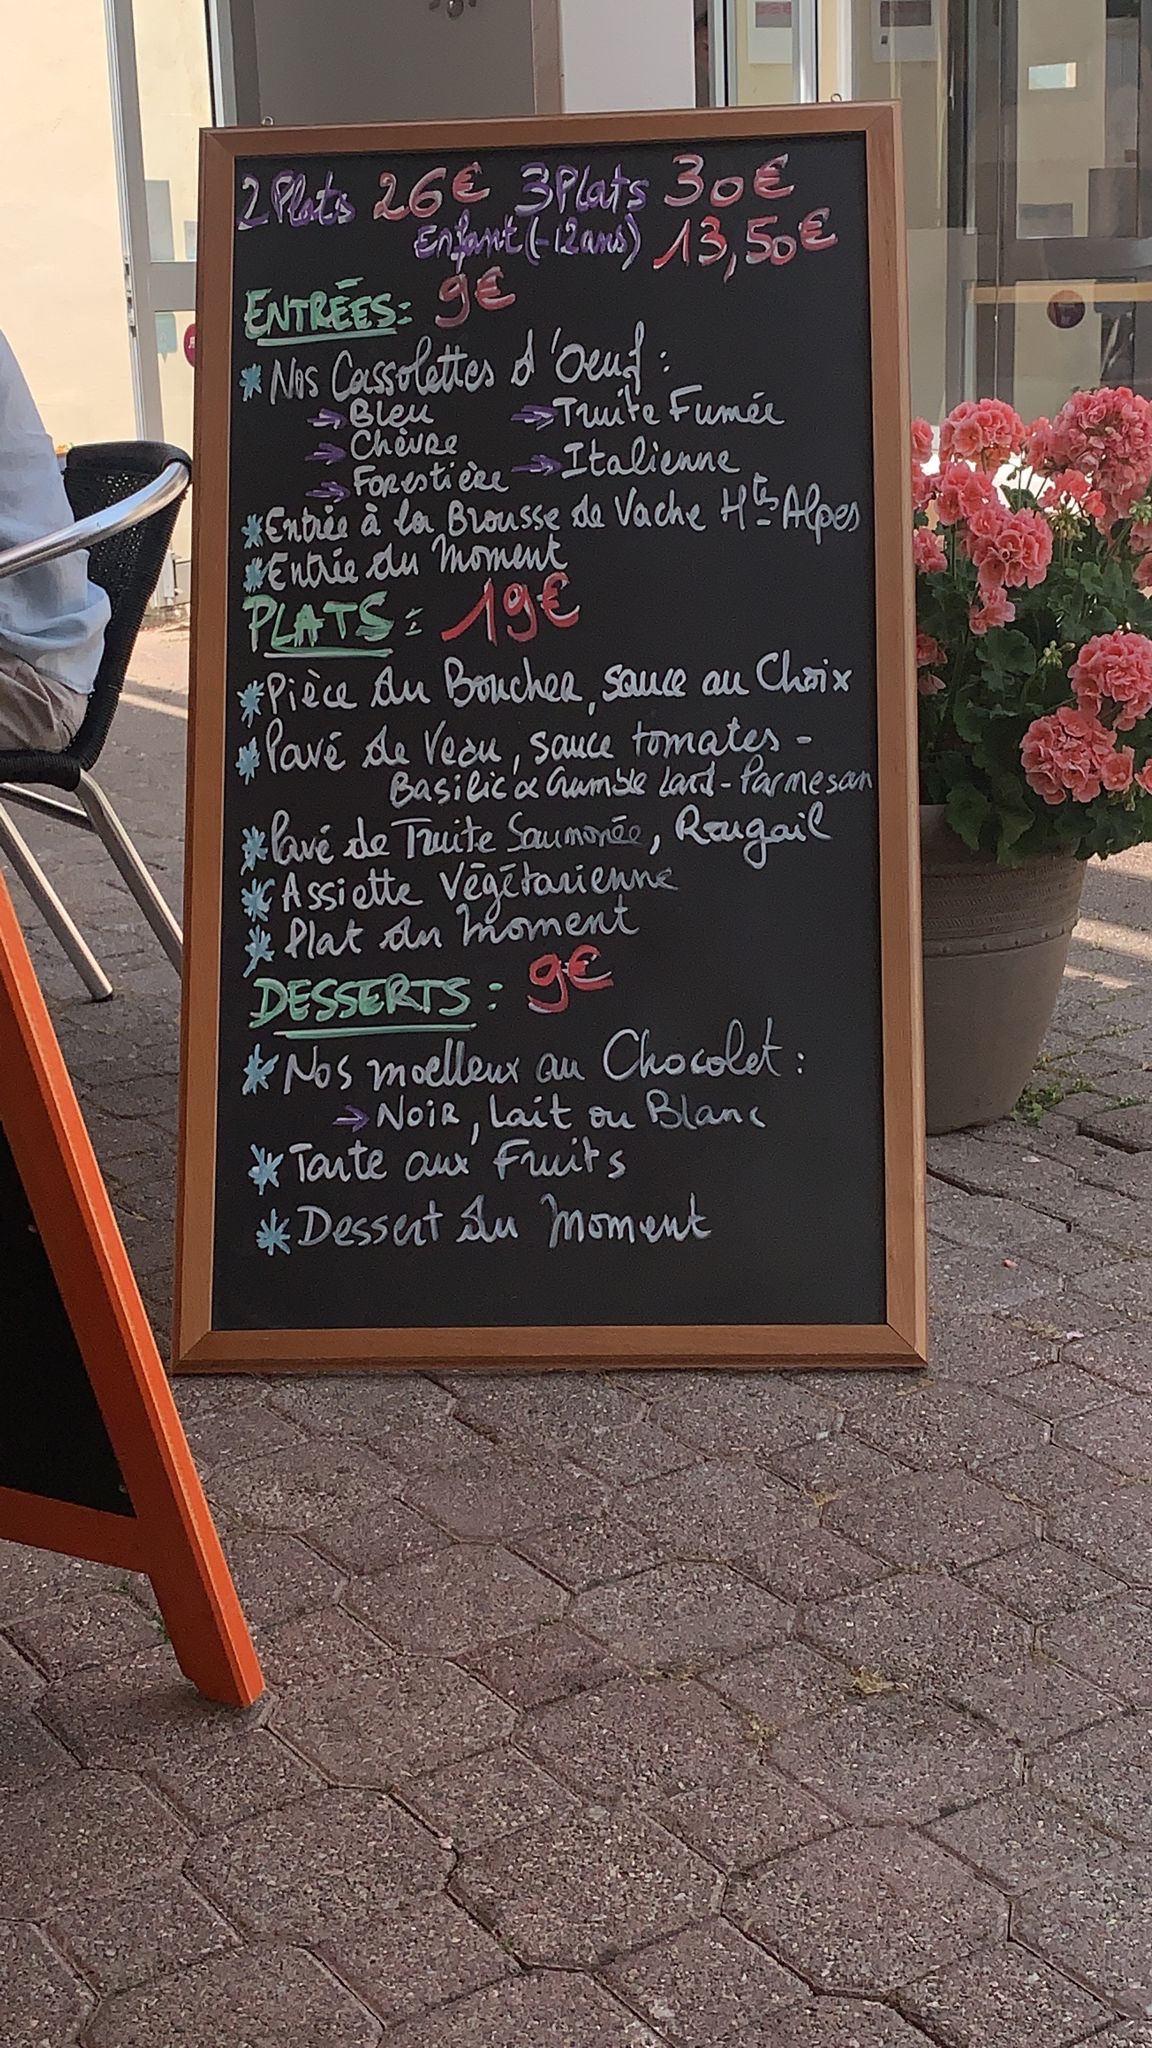 2 Plats 26€ 3 Plats 30€
Enfant (-12 ans) 13,50€
ENTRÉES: 9€
* Nos Cassolettes d'Oeuf :
→ Bleu → Truite Fumée
→ Chèvre
→ Forestière → Italienne
* Entrée à la Brousse de Vache Htes Alpes
* Entrée du Moment
PLATS : 19€
* Pièce du Boucher, sauce au Choix
* Pavé de Veau, sauce tomates -
Basilic & Crumble Lard - Parmesan
* Pavé de Truite Saumonée, Rougail
* Assiette Végétarienne
* Plat du Moment
DESSERTS : 9€
* Nos moelleux au Chocolat :
→ Noir, Lait ou Blanc
* Tarte aux Fruits
* Dessert du Moment